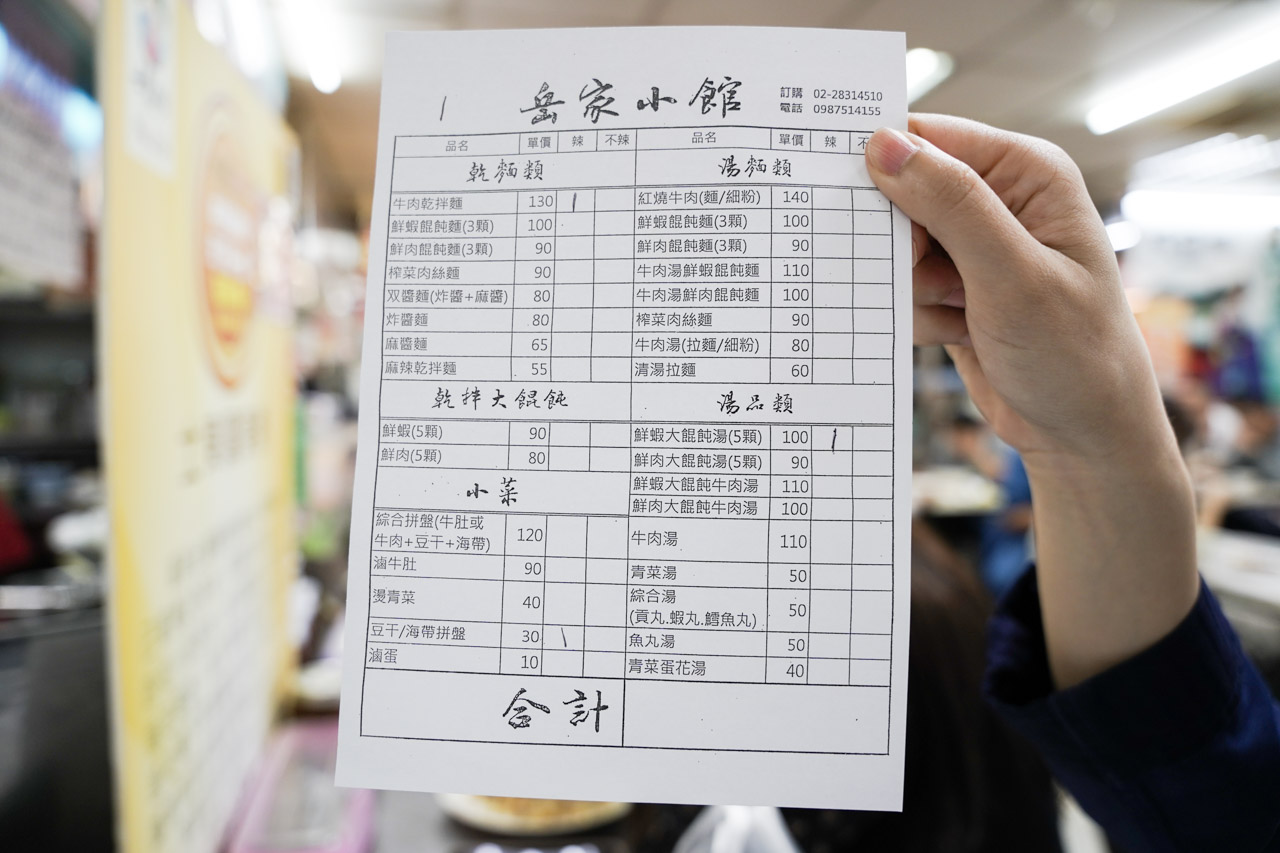 1
岳家小館
訂購 02-28314510
電話 0987514155
品名 單價 辣 不辣
乾麵類
牛肉乾拌麵 130 1
鮮蝦餛飩麵(3顆) 100
鮮肉餛飩麵(3顆) 90
榨菜肉絲麵 90
双醬麵(炸醬+麻醬) 80
炸醬麵 80
麻醬麵 65
麻辣乾拌麵 55
乾拌大餛飩
鮮蝦(5顆) 90
鮮肉(5顆) 80
小菜
綜合拼盤(牛肚或
牛肉+豆干+海帶) 120
滷牛肚 90
燙青菜 40
豆干/海帶拼盤 30 1
滷蛋 10
品名 單價 辣
湯麵類
紅燒牛肉(麵/細粉) 140
鮮蝦餛飩麵(3顆) 100
鮮肉餛飩麵(3顆) 90
牛肉湯鮮蝦餛飩麵 110
牛肉湯鮮肉餛飩麵 100
榨菜肉絲麵 90
牛肉湯(拉麵/細粉) 80
清湯拉麵 60
湯品類
鮮蝦大餛飩湯(5顆) 100 1
鮮肉大餛飩湯(5顆) 90
鮮蝦大餛飩牛肉湯 110
鮮肉大餛飩牛肉湯 100
牛肉湯 110
青菜湯 50
綜合湯
(貢丸.蝦丸.鱈魚丸) 50
魚丸湯 50
青菜蛋花湯 40
合計